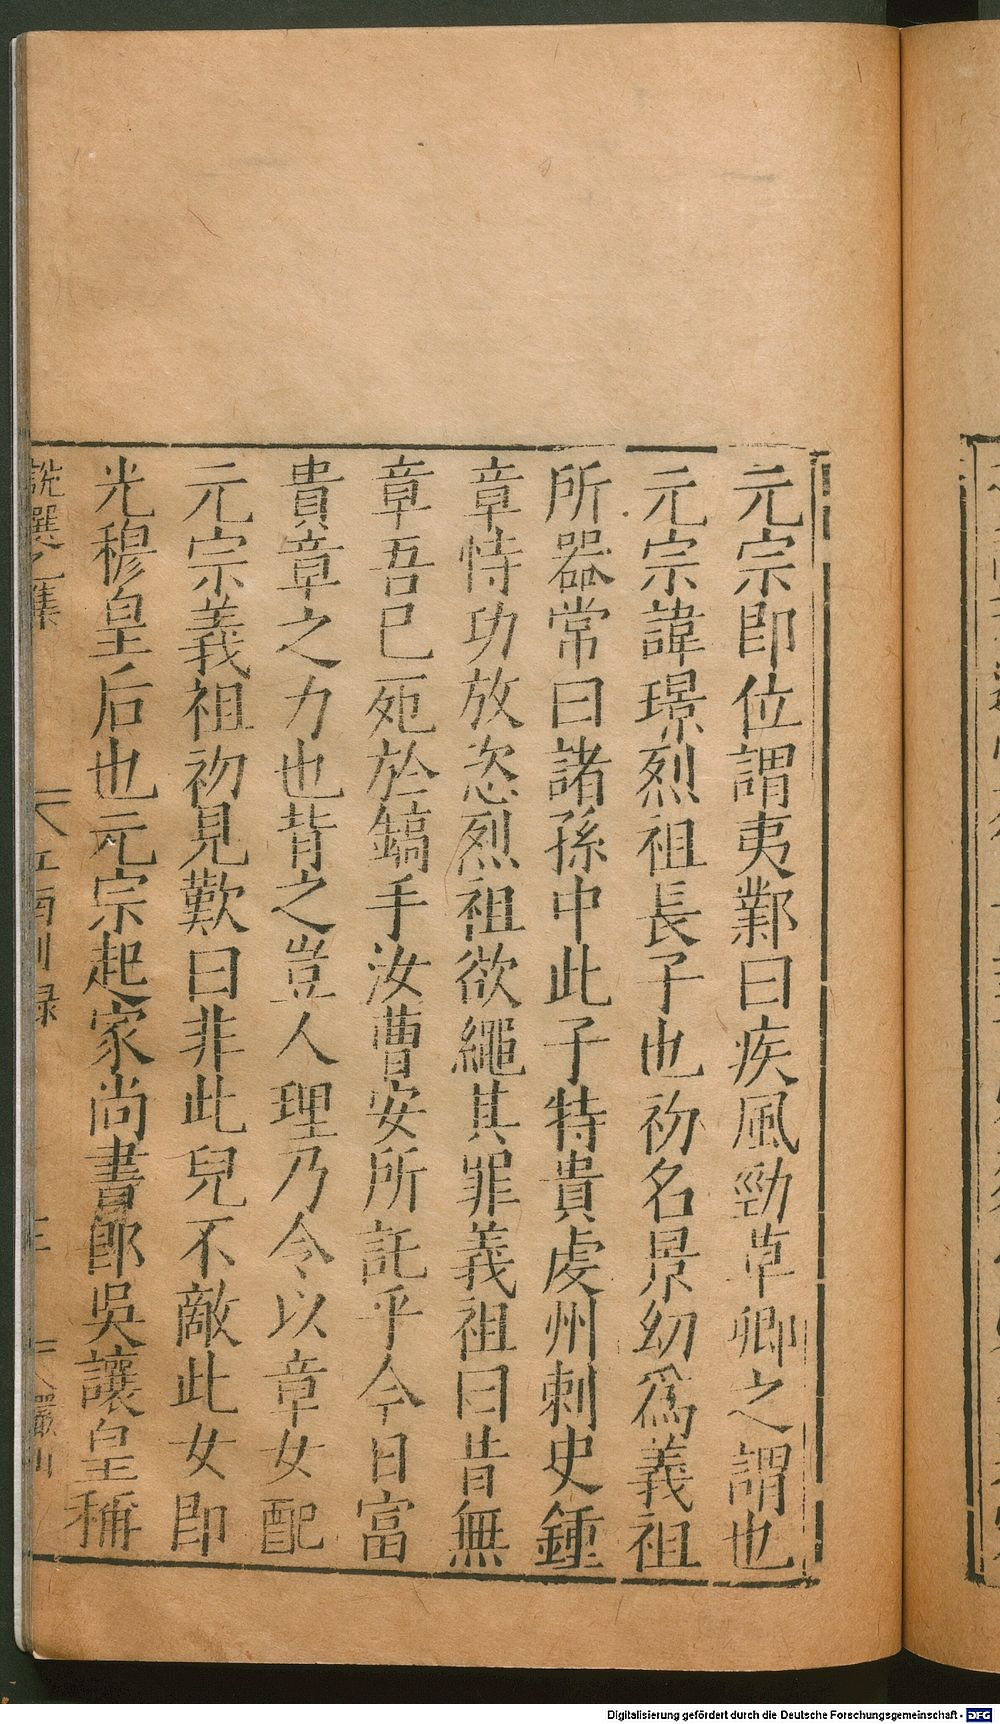 元宗即位謂夷鄴曰疾風勁草卿之謂也
元宗諱璟烈祖長子也初名景幼爲義祖
所器常曰諸孫中此子特貴虔州刺史鍾
章恃功放恣烈祖欲繩其罪義祖曰昔無
章吾已死於鎬手汝曹安所託乎今日富
貴章之力也背之豈人理乃令以章女配
元宗義祖初見歎曰非此兒不敵此女即
光穆皇后也元宗起家尚書郎吳讓皇稱
說選乙集
江南別錄
三
Digitalisierung gefördert durch die Deutsche Forschungsgemeinschaft - DFG